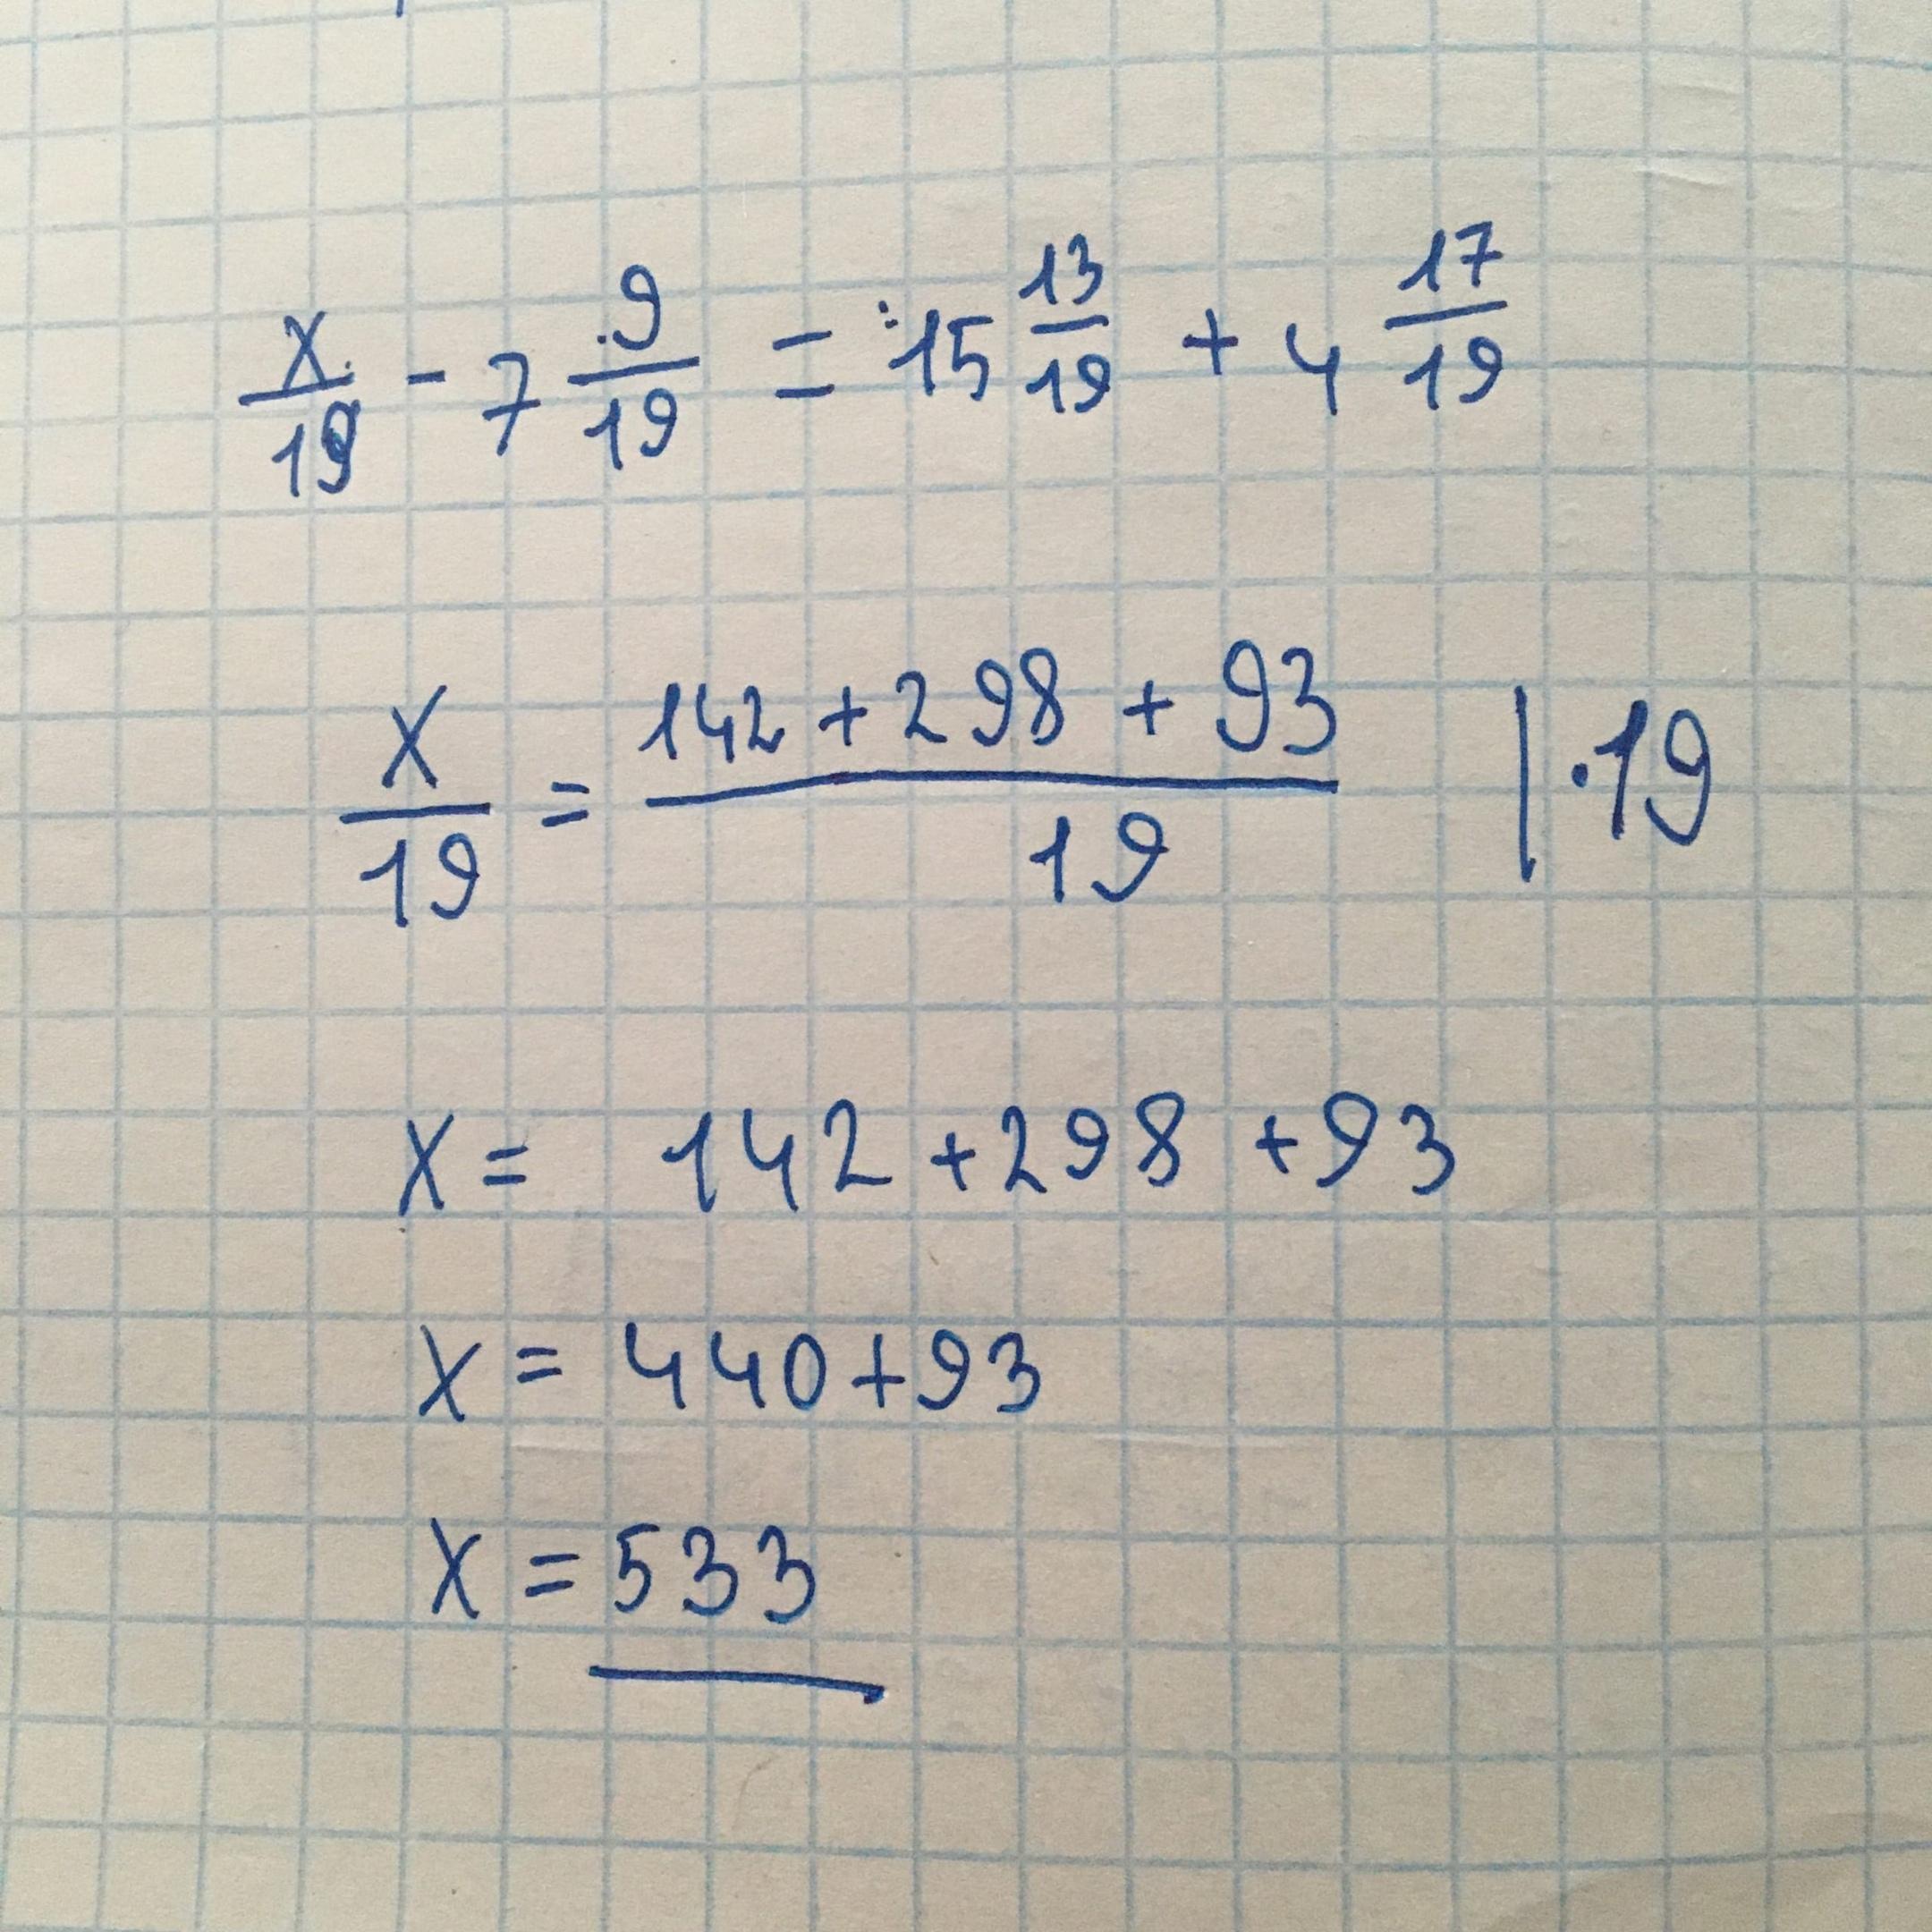 x/19 - 7 9/19 = 15 13/19 + 4 17/19
x/19 = (142 + 298 + 93)/19 | · 19
x = 142 + 298 + 93
x = 440 + 93
x = 533